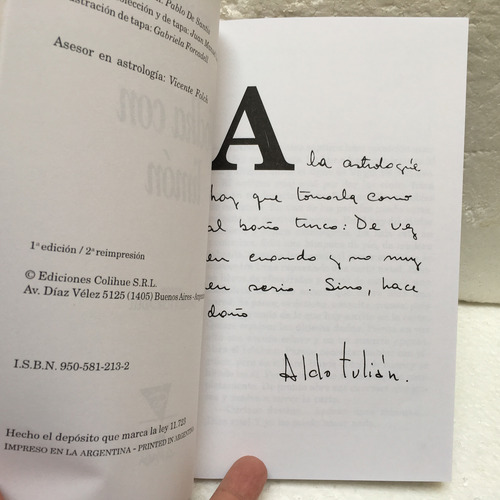 Pablo De Santis
olección y de tapa: Juan Manuel
stración de tapa: Gabriela Forondell
Asesor en astrología: Vicente Folch
con
1ª edición / 2ª reimpresión
© Ediciones Colihue S.R.L.
Av. Díaz Vélez 5125 (1405) Buenos Aires -
I.S.B.N. 950-581-213-2
Hecho el depósito que marca la ley 11.723
IMPRESO EN LA ARGENTINA - PRINTED IN ARGENTINA
A
la astrología
hay que tomarla como
al baño turco: De vez
en cuando y no muy
en serio. Sino, hace
daño
Aldo Tulián.